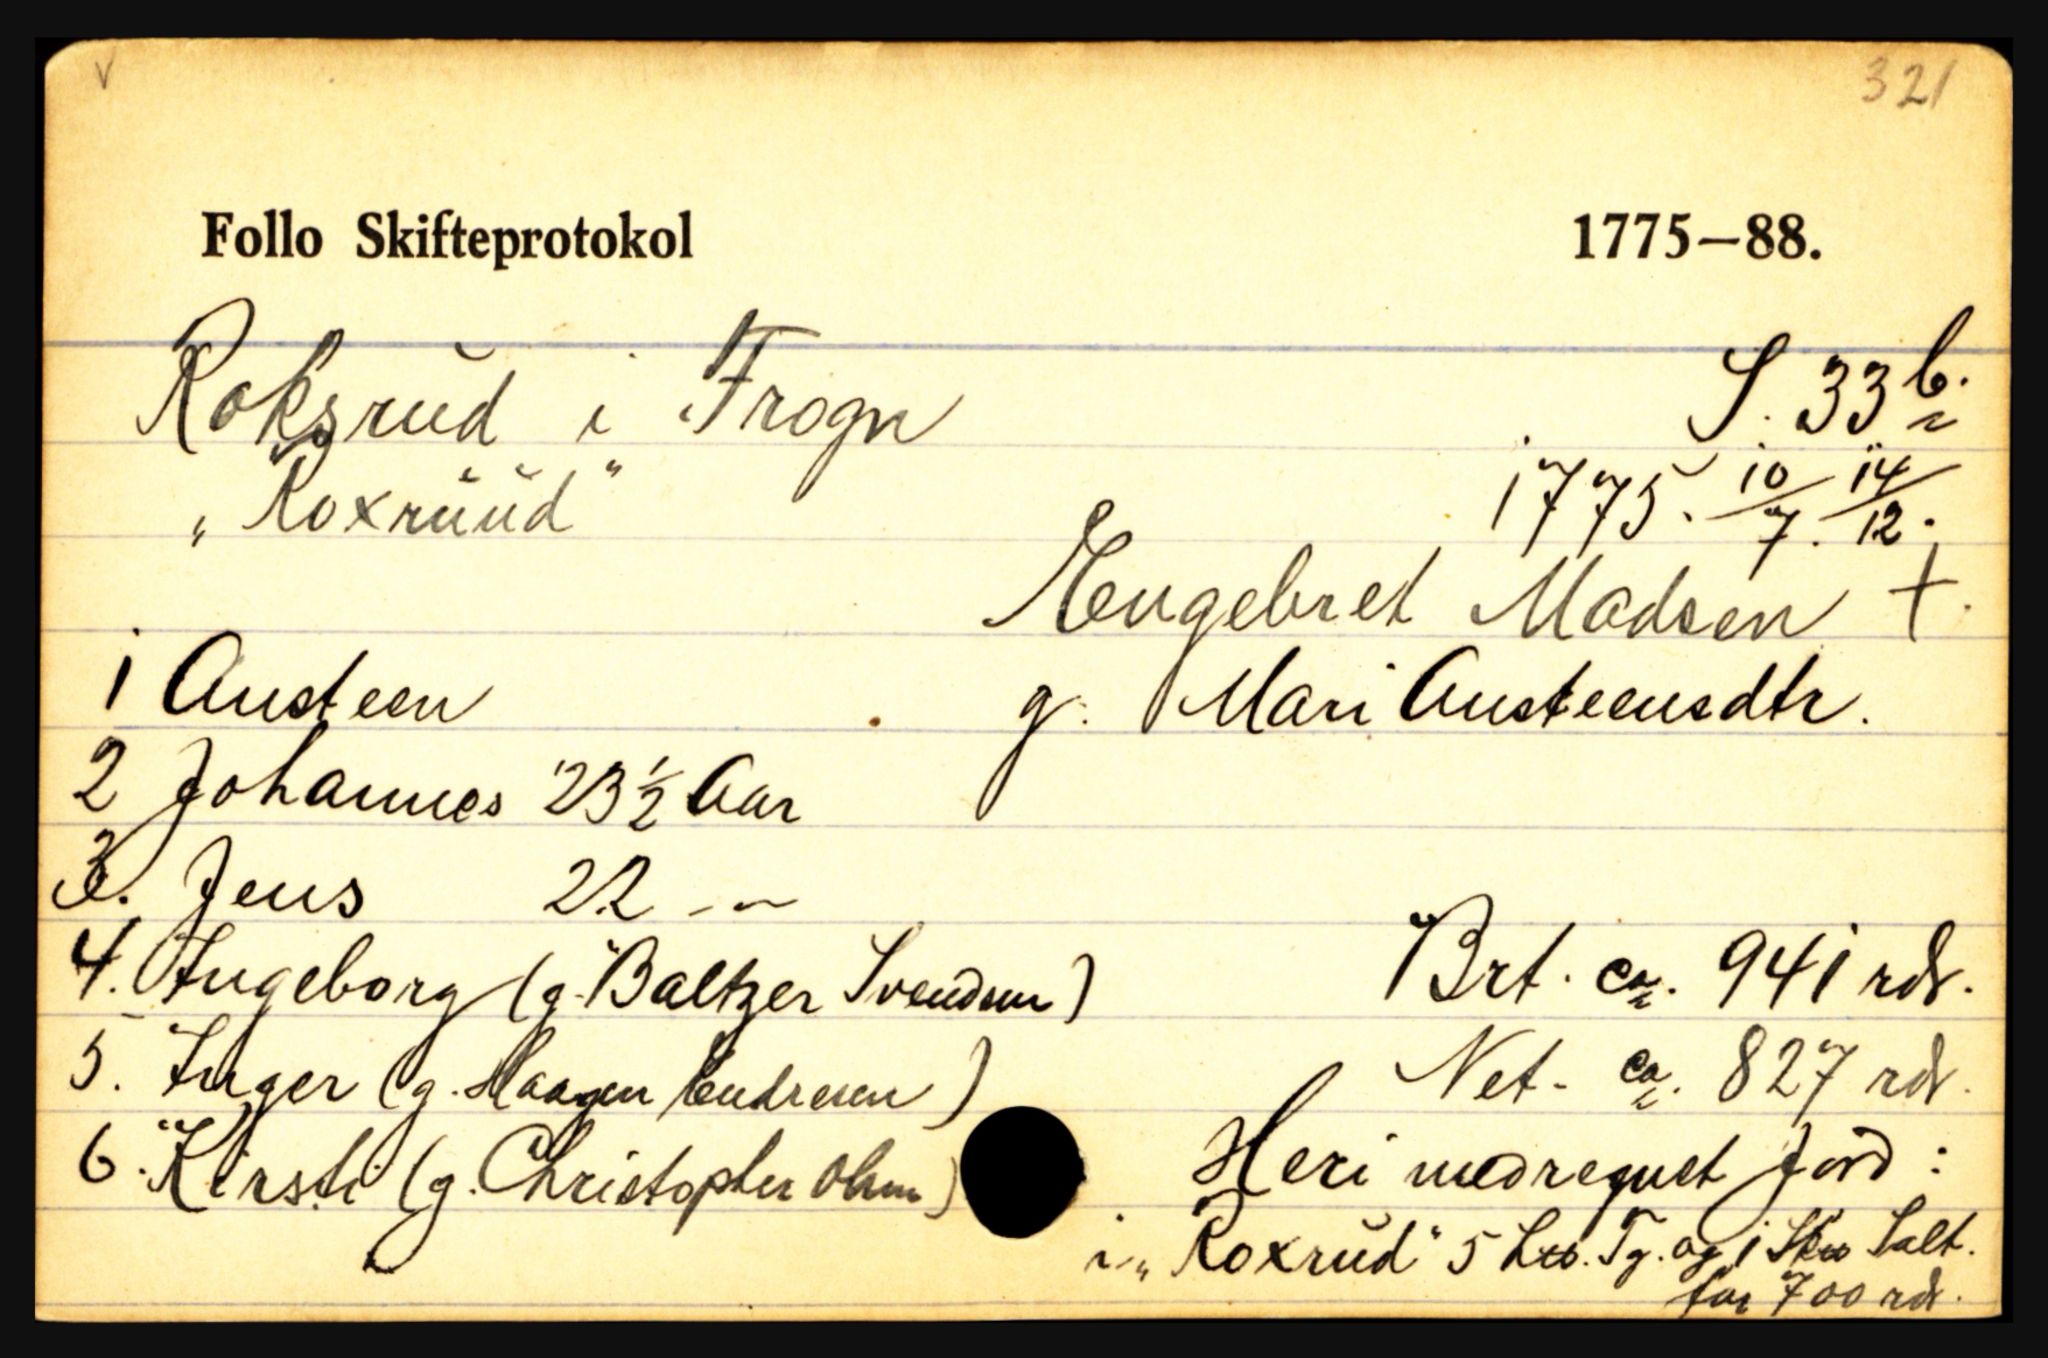 v 321
Follo Skifteprotokol 1775–88.
Roksrud i Frogn S. 33 b.
"Roxruud" 1775. 10/7. 14/12.
Engebret Madsen †.
1 Austeen g. Mari Austeensdtr.
2 Johannes 23 1/2 Aar
3. Jens 22 -〃-
4. Ingeborg (g. Baltzer Svendsen) Brt. ca. 941 rdr.
5. Inger (g. Haagen Endresen) Net. ca. 827 rdr.
6. Kirsti (g. Christopher Olsen) Heri medregnet Jord:
i "Roxrud" 5 Lb. Tg. og 1 Skb Salt.
for 700 rdr.